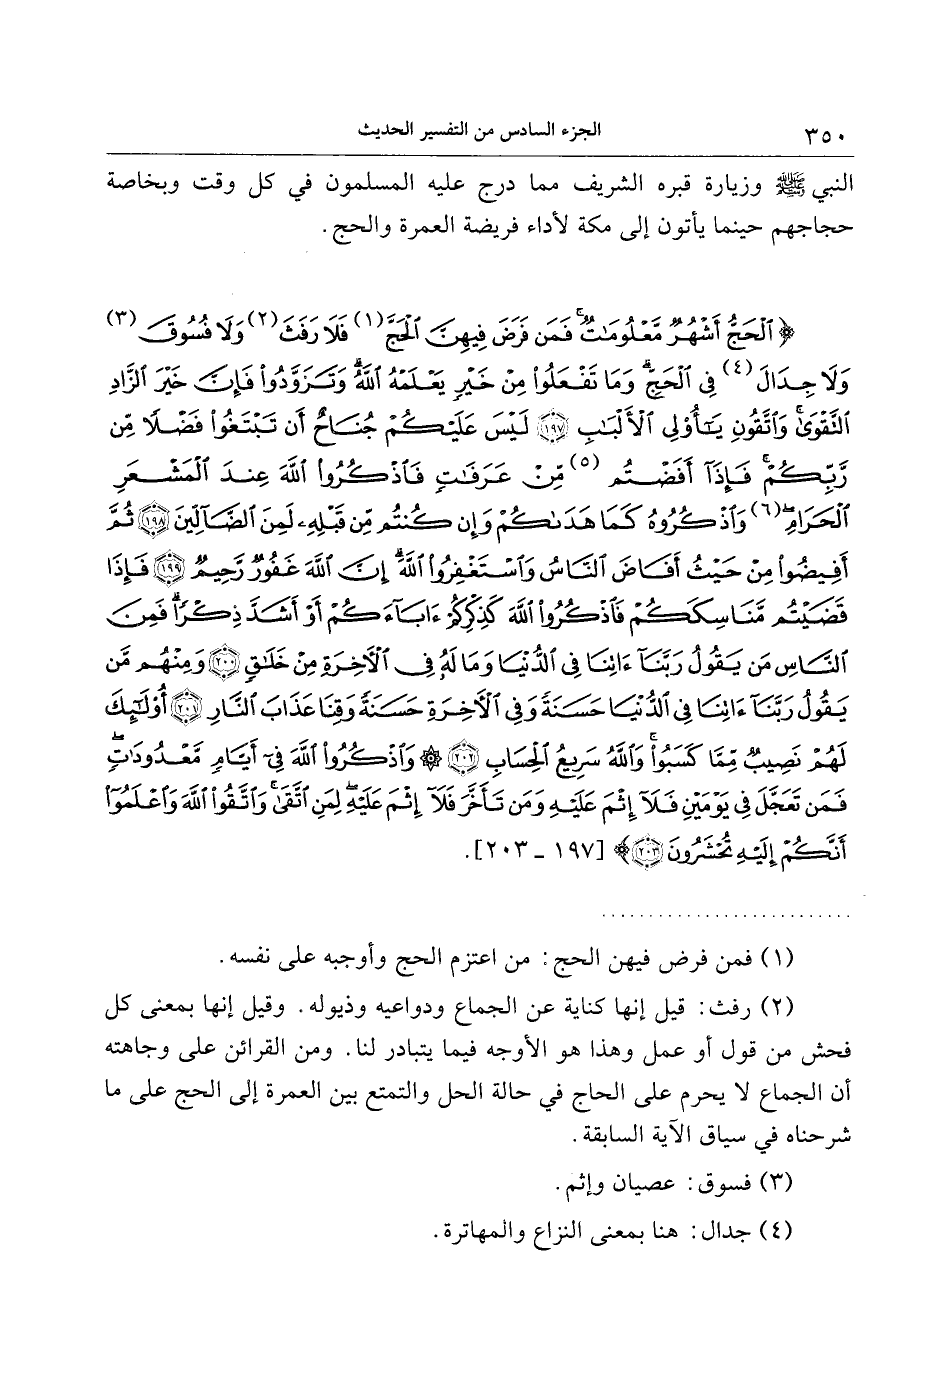 ٣٥٠ الجزء السادس من التفسير الحديث
النبي ﷺ وزيارة قبره الشريف مما درج عليه المسلمون في كل وقت وبخاصة
حجاجهم حينما يأتون إلى مكة لأداء فريضة العمرة والحج.
﴿ ٱلْحَجُّ أَشْهُرٌ مَّعْلُومَٰتٌ ۚ فَمَن فَرَضَ فِيهِنَّ ٱلْحَجَّ (١) فَلَا رَفَثَ (٢) وَلَا فُسُوقَ (٣)
وَلَا جِدَالَ (٤) فِى ٱلْحَجِّ ۗ وَمَا تَفْعَلُوا۟ مِنْ خَيْرٍ يَعْلَمْهُ ٱللَّهُ ۗ وَتَزَوَّدُوا۟ فَإِنَّ خَيْرَ ٱلزَّادِ
ٱلتَّقْوَىٰ ۚ وَٱتَّقُونِ يَٰٓأُو۟لِى ٱلْأَلْبَٰبِ ١٩٧ لَيْسَ عَلَيْكُمْ جُنَاحٌ أَن تَبْتَغُوا۟ فَضْلًا مِّن
رَّبِّكُمْ ۚ فَإِذَآ أَفَضْتُم (٥) مِّنْ عَرَفَٰتٍ فَٱذْكُرُوا۟ ٱللَّهَ عِندَ ٱلْمَشْعَرِ
ٱلْحَرَامِ ۖ (٦) وَٱذْكُرُوهُ كَمَا هَدَىٰكُمْ وَإِن كُنتُم مِّن قَبْلِهِۦ لَمِنَ ٱلضَّآلِّينَ ١٩٨ ثُمَّ
أَفِيضُوا۟ مِنْ حَيْثُ أَفَاضَ ٱلنَّاسُ وَٱسْتَغْفِرُوا۟ ٱللَّهَ ۚ إِنَّ ٱللَّهَ غَفُورٌ رَّحِيمٌ ١٩٩ فَإِذَا
قَضَيْتُم مَّنَاسِكَكُمْ فَٱذْكُرُوا۟ ٱللَّهَ كَذِكْرِكُمْ ءَابَآءَكُمْ أَوْ أَشَدَّ ذِكْرًا ۗ فَمِنَ
ٱلنَّاسِ مَن يَقُولُ رَبَّنَآ ءَاتِنَا فِى ٱلدُّنْيَا وَمَا لَهُۥ فِى ٱلْءَاخِرَةِ مِنْ خَلَٰقٍ ٢٠٠ وَمِنْهُم مَّن
يَقُولُ رَبَّنَآ ءَاتِنَا فِى ٱلدُّنْيَا حَسَنَةً وَفِى ٱلْءَاخِرَةِ حَسَنَةً وَقِنَا عَذَابَ ٱلنَّارِ ٢٠١ أُو۟لَٰٓئِكَ
لَهُمْ نَصِيبٌ مِّمَّا كَسَبُوا۟ ۚ وَٱللَّهُ سَرِيعُ ٱلْحِسَابِ ٢٠٢ ۞ وَٱذْكُرُوا۟ ٱللَّهَ فِىٓ أَيَّامٍ مَّعْدُودَٰتٍ ۚ
فَمَن تَعَجَّلَ فِى يَوْمَيْنِ فَلَآ إِثْمَ عَلَيْهِ وَمَن تَأَخَّرَ فَلَآ إِثْمَ عَلَيْهِ ۚ لِمَنِ ٱتَّقَىٰ ۗ وَٱتَّقُوا۟ ٱللَّهَ وَٱعْلَمُوٓا۟
أَنَّكُمْ إِلَيْهِ تُحْشَرُونَ ٢٠٣ ﴾ [١٩٧ ـ ٢٠٣].
(١) فمن فرض فيهن الحج: من اعتزم الحج وأوجبه على نفسه.
(٢) رفث: قيل إنها كناية عن الجماع ودواعيه وذيوله. وقيل إنها بمعنى كل
فحش من قول أو عمل وهذا هو الأوجه فيما يتبادر لنا. ومن القرائن على وجاهته
أن الجماع لا يحرم على الحاج في حالة الحل والتمتع بين العمرة إلى الحج على ما
شرحناه في سياق الآية السابقة.
(٣) فسوق: عصيان وإثم.
(٤) جدال: هنا بمعنى النزاع والمهاترة.